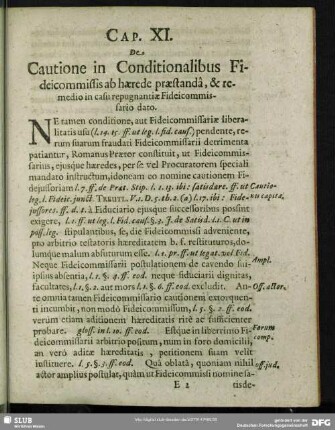 CAP. XI.
De
Cautione in Conditionalibus Fi-
deicommissis ab hærede præstandâ, & re-
medio in casu repugnantiæ Fideicommis-
sario dato.
NE tamen conditione, aut Fideicommissariæ libera-
litatis usu (l. 14. 15. ff. ut leg. l. fid. caus.) pendente, re-
rum suarum fraudati Fideicommissarii detrimenta
patiantur, Romanus Prætor constituit, ut Fideicommis-
sarius, ejusque hæredes, per se vel Procuratorem speciali
mandato instructum, idoneam eo nomine cautionem Fi-
dejussoriam l. 7. ff. de Præt. Stip. l. 1. 9. ibi: satisdare. ff. ut Cautio-
leg. l. Fideic. junct. TREUTL. V. 2. D. 5. th. 2. (a) l. 17. ibi: Fide- nis capita,
jussores. ff. d. t. à Fiduciario ejusque successoribus possint
exigere, l. 1. ff. ut leg. l. Fid. caus. §. 2. ff. de Satisd. l. 1. C. ut in
poss. leg. stipulantibus, se, die Fideicommissi adveniente,
pro arbitrio testatoris hæreditatem b. f. restituturos, do-
lumque malum abfuturum esse. l. 1. pr. ff. ut legat. vel Fid.
Neque Fideicommissarii postulationem de cavendo sui- Ampl.
ipsius absentia, l. 1. §. 4. ff. eod. neque fiduciarii dignitas,
facultates, l. 1. §. 2. aut mors l. 1. §. 6. ff. eod. excludit. An- Off. actor.
te omnia tamen Fideicommissario cautionem extorquen-
ti incumbit, non modò Fideicommissum, l. 5. §. 2. ff. eod.
verum etiam aditionem hæreditatis ritè ac sufficienter
probare. gloss. in l. 10. ff. eod. Estque in liberrimo Fi- Forum
deicommissarii arbitrio positum, num in foro domicilii, comp.
an verò aditæ hæreditatis, petitionem suam velit
instituere. l. 5. §. 3. ff. eod. Quâ oblatâ, quoniam nihil off. jud.
actor amplius postulat, quàm ut Fideicommissi nomine sa-
E 2 tisde-
SLUB
Wir führen Wissen.